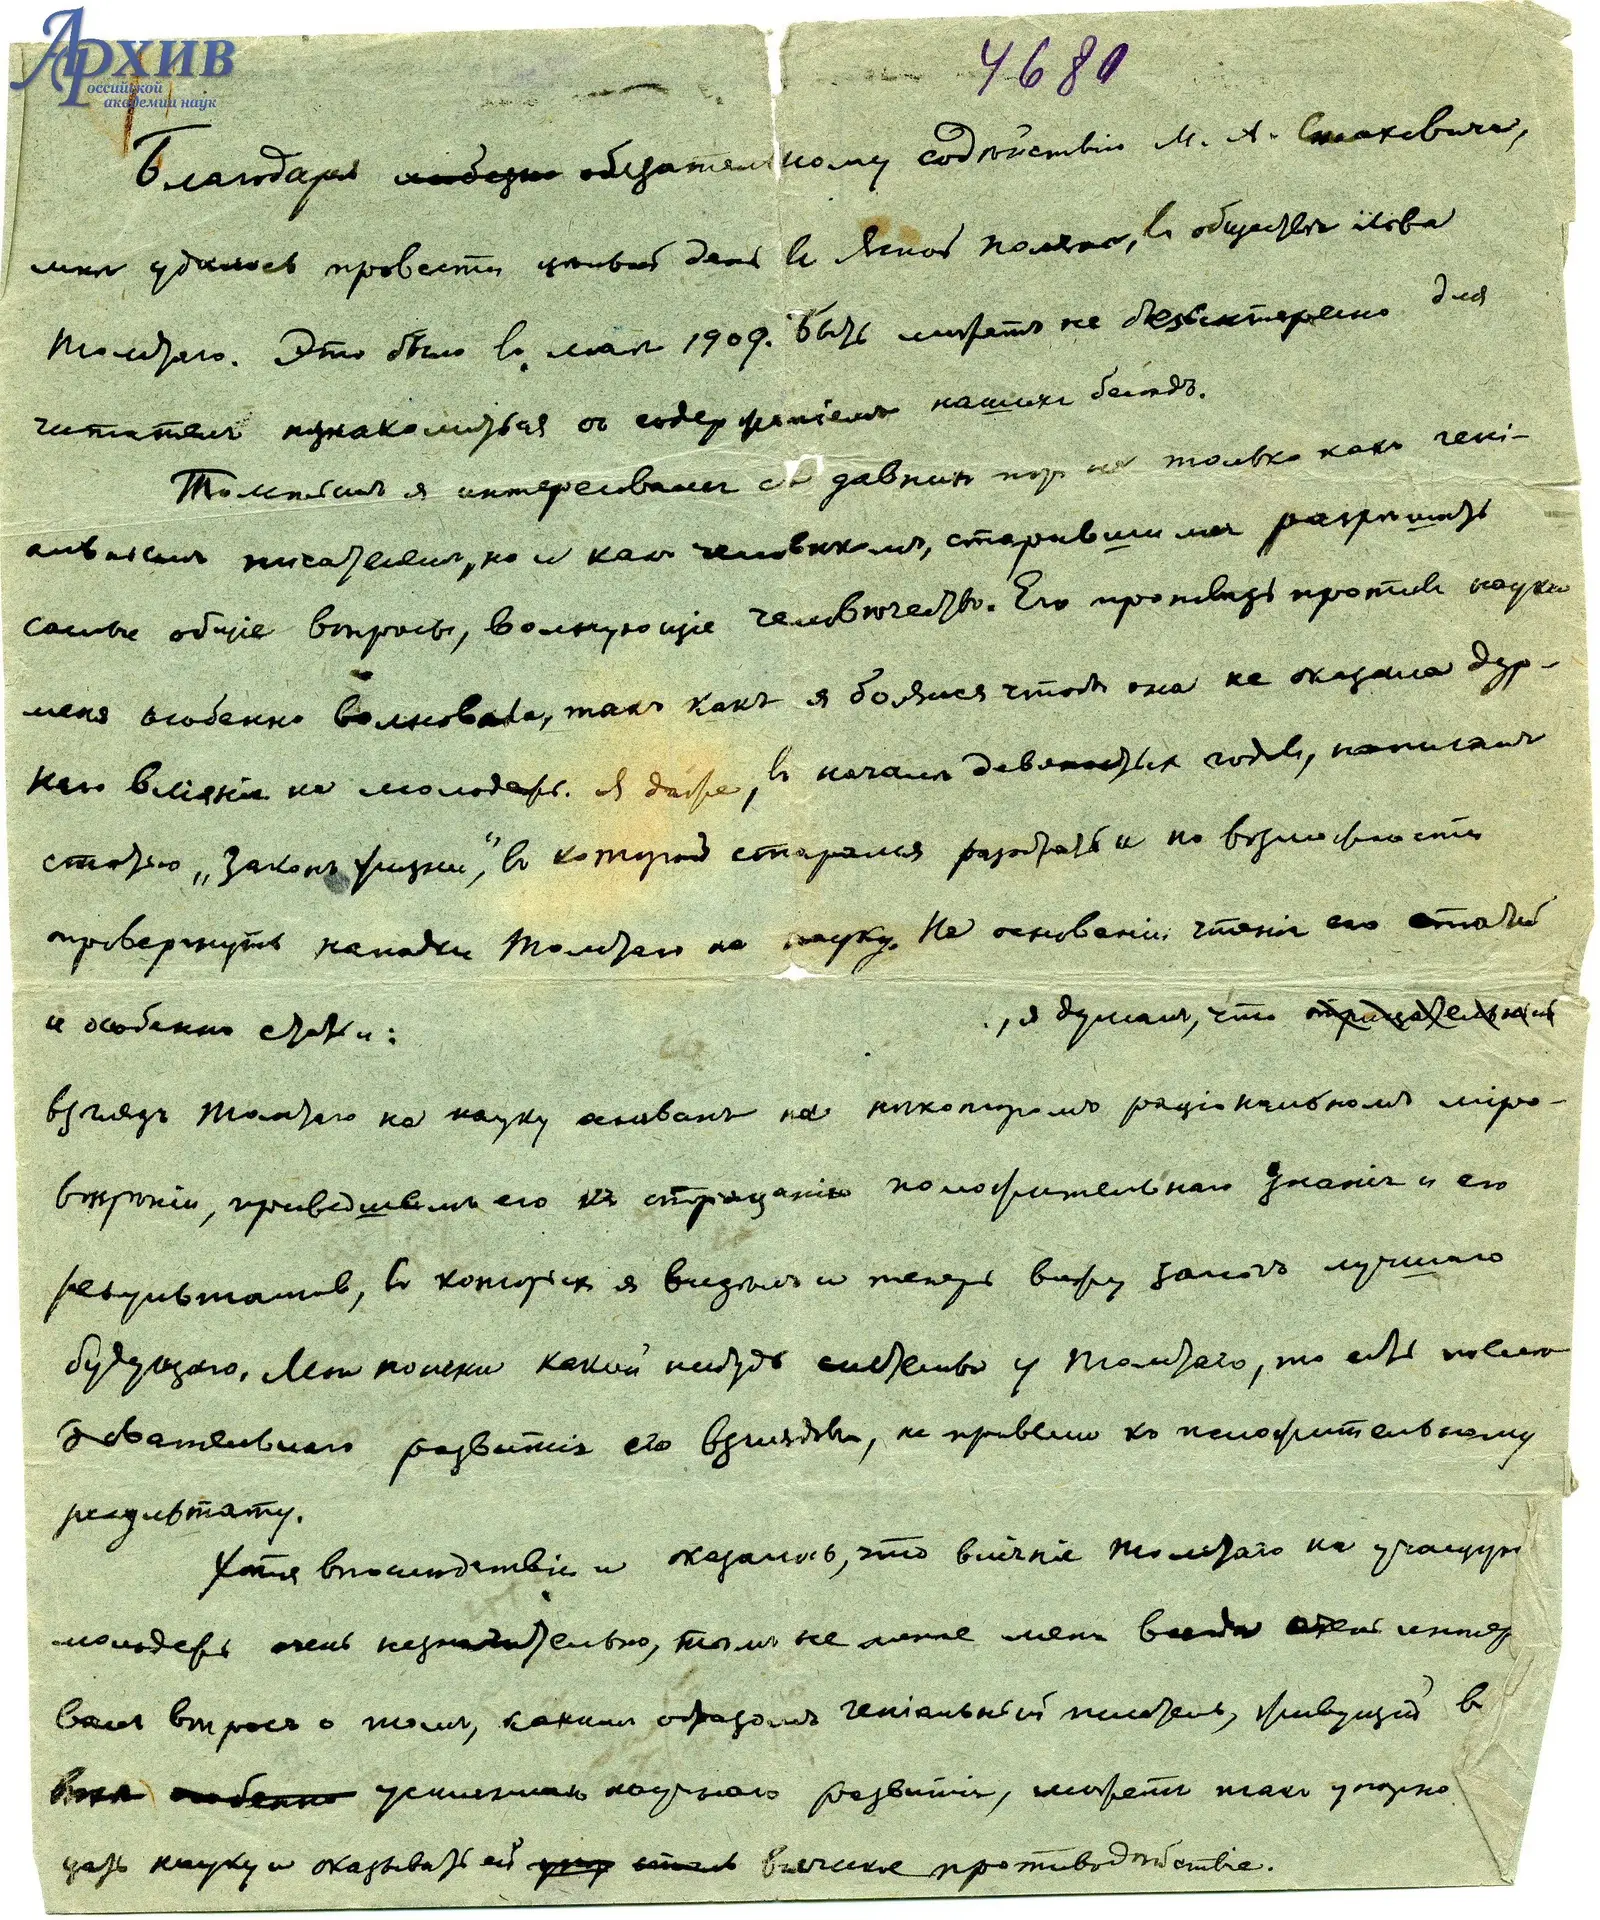 Архив
Российской
академии наук
4680
Благодаря любезно обязательному содѣйствію М. А. Стаховича,
мнѣ удалось провести цѣлый день въ Ясной Полянѣ, въ обществѣ Льва
Толстаго. Это было въ маѣ 1909. Быть можетъ не безынтересно для
читателя познакомиться съ содержаніемъ нашихъ бесѣдъ.
Толстымъ я интересовался съ давнихъ поръ не только какъ гені-
альнымъ писателемъ, но и какъ человѣкомъ, старавшимся разрѣшать
самые общіе вопросы, волнующіе человѣчество. Его проповѣдь противъ науки
меня особенно волновала, такъ какъ я боялся чтобы она не оказала дур-
наго вліянія на молодежь. Я даже, въ началѣ девяностыхъ годовъ, написалъ
статью „Законъ жизни", въ которой старался разобрать и по возможности
опровергнуть нападки Толстаго на науку. На основаніи чтенія его статей
и особенно статьи: , я думалъ, что отрицательный
взглядъ Толстаго на науку основанъ на нѣкоторомъ раціональномъ міро-
воззрѣніи, приведшемъ его къ отрицанію положительнаго знанія и его
результатовъ, въ которыхъ я видѣлъ и теперь вижу залогъ лучшаго
будущаго. Мои поиски какой нибудь системы у Толстаго, то есть послѣ-
довательнаго развитія его взглядовъ, не привели къ положительному
результату.
Хотя впослѣдствіи и оказалось, что вліяніе Толстаго на учащуюся
молодежь очень незначительно, тѣмъ не менѣе меня очень интер
валъ вопросъ о томъ, какимъ образомъ геніальный писатель, живущій въ
особенно усиленнаго научнаго развитія, можетъ такъ упорно
цать науку и оказывать ей всяческое противодѣйствіе.